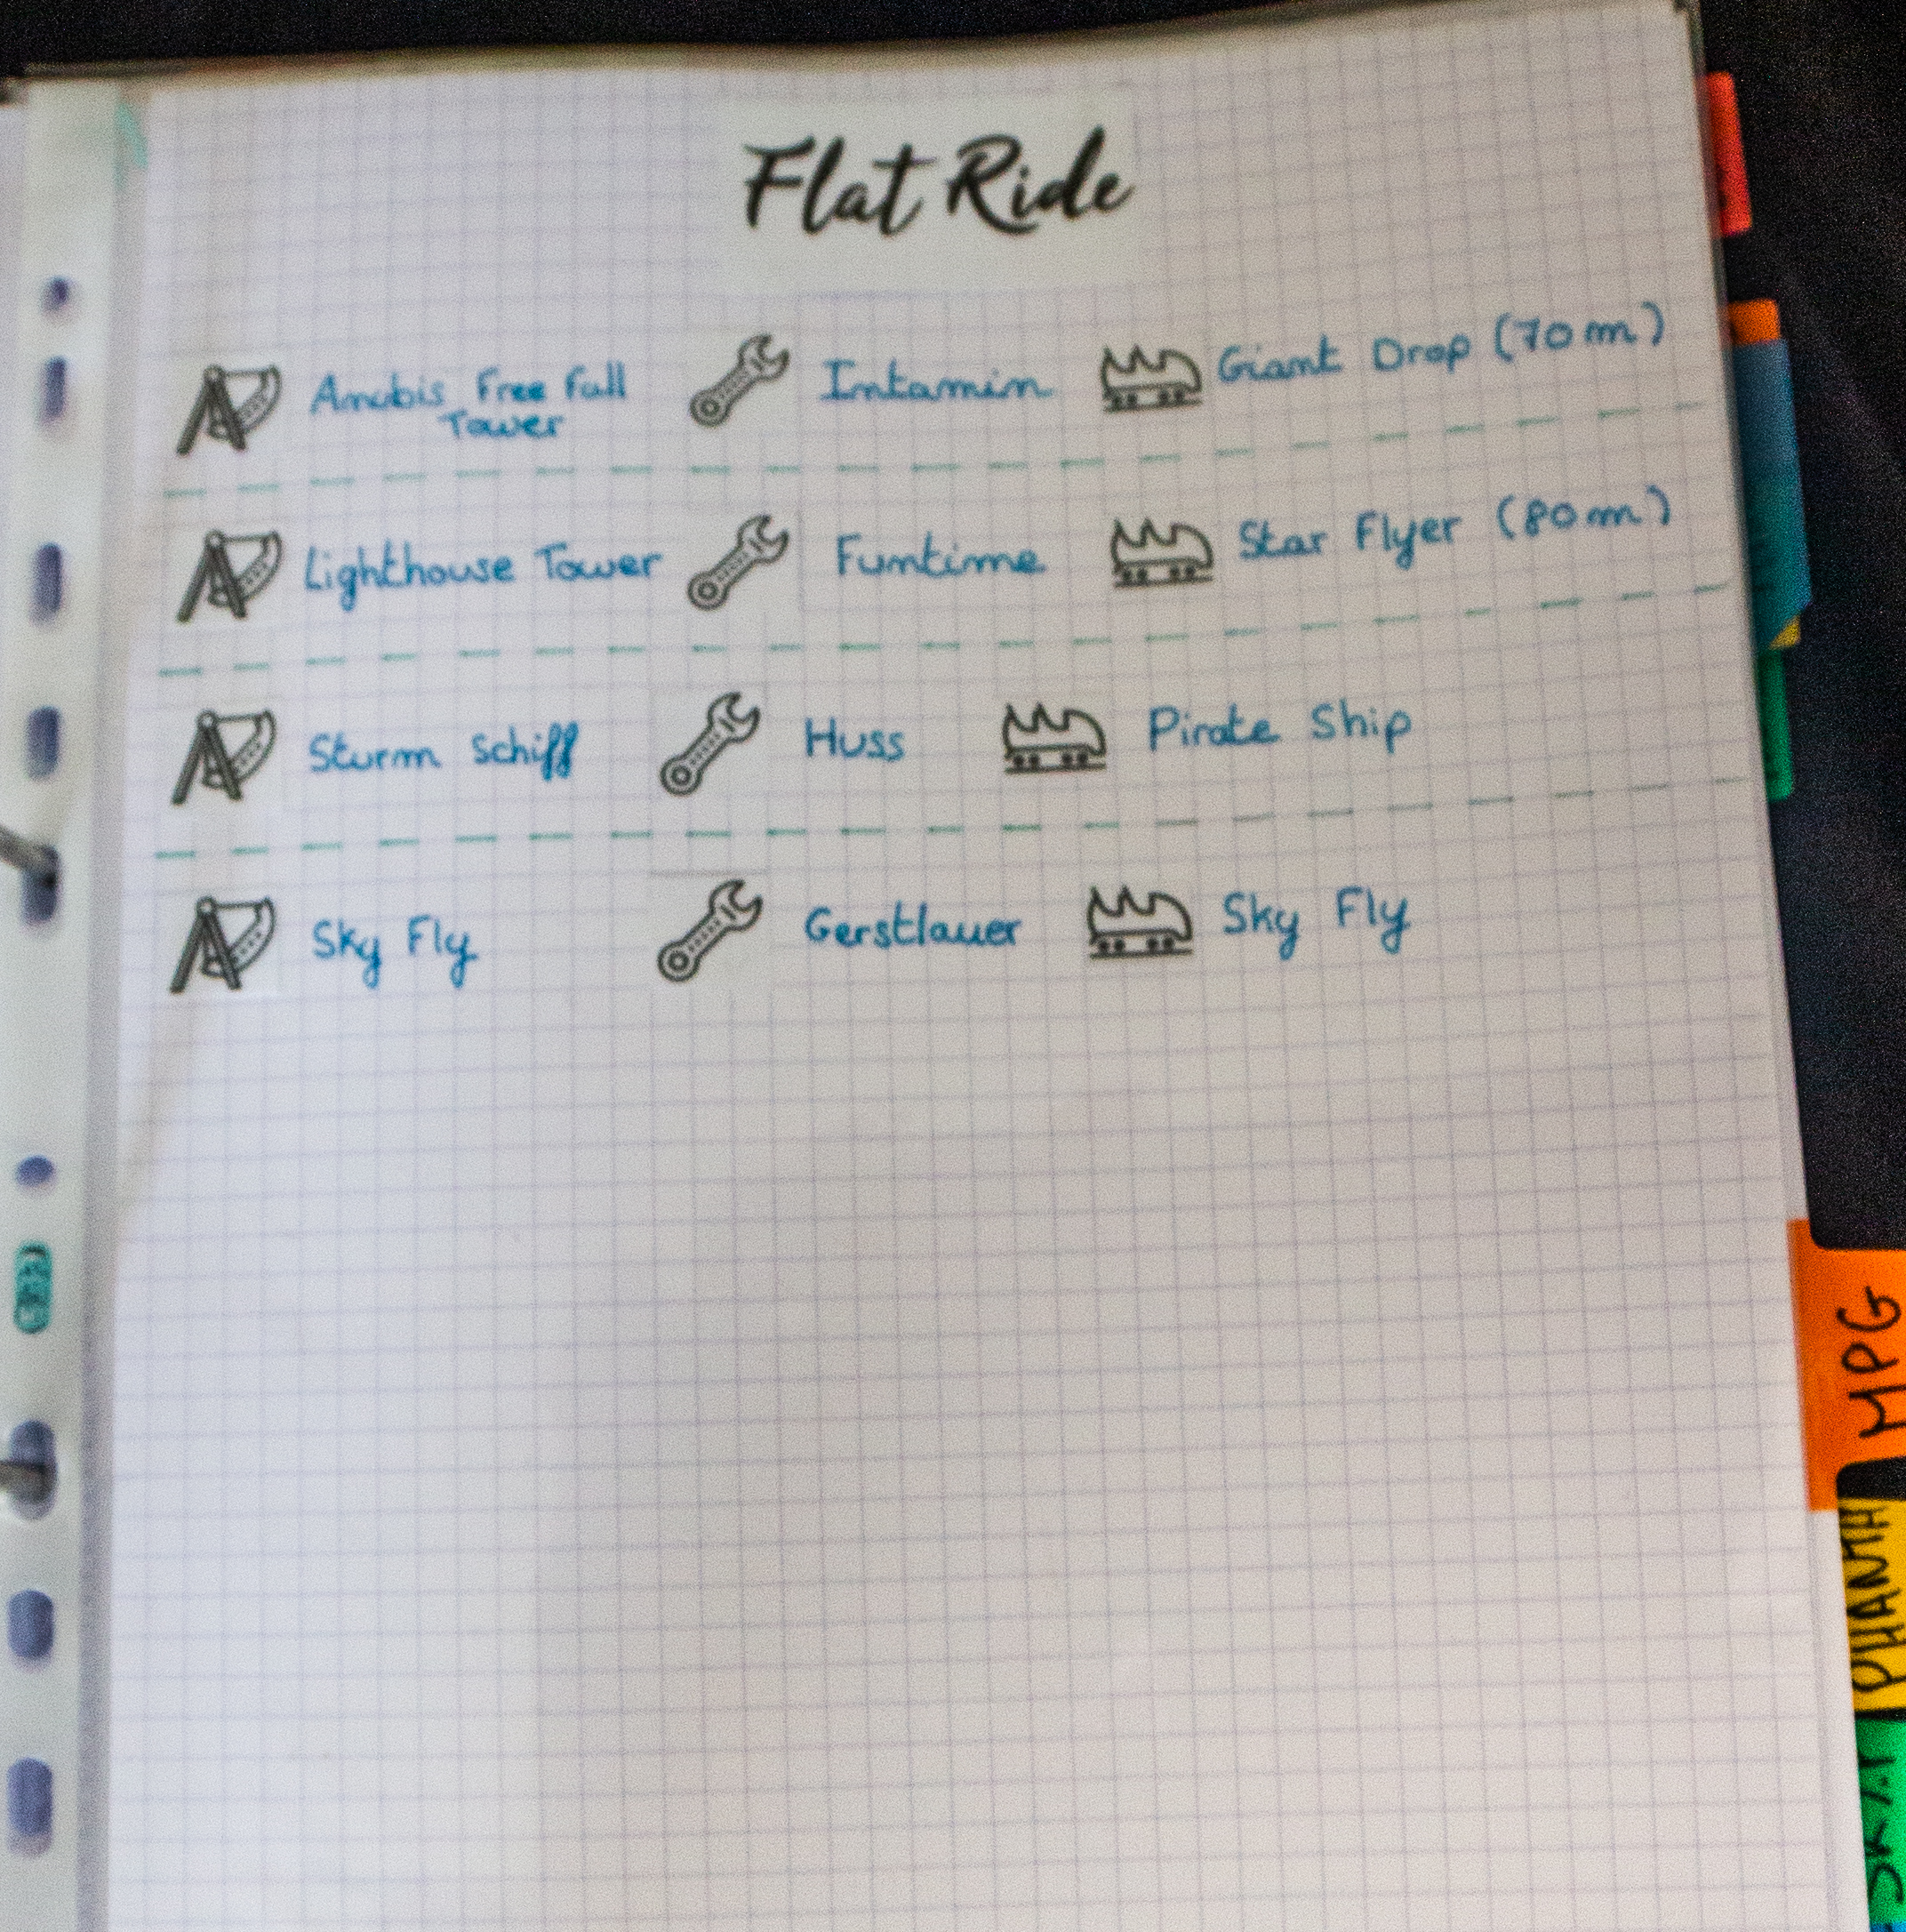 Flat Ride
Anubis Free Fall
Tower
Intamin
Giant Drop (70m)
Lighthouse Tower
Funtime
Star Flyer (80m)
Sturm Schiff
Huss
Pirate Ship
Sky Fly
Gerstlauer
Sky Fly
MPG